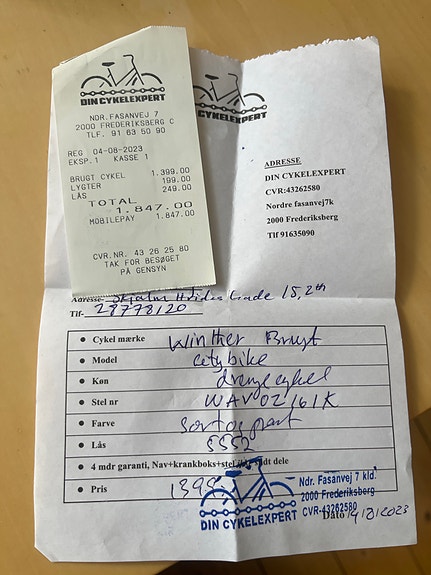 DIN CYKELEXPERT
NDR. FASANVEJ 7
2000 FREDERIKSBERG C
TLF. 91 63 50 90
REG 04-08-2023
EKSP.1 KASSE 1
BRUGT CYKEL 1.399.00
LYGTER 199.00
LÅS 249.00
TOTAL
1.847.00
MOBILEPAY 1.847.00
CVR.NR. 43 26 25 80
TAK FOR BESØGET
PÅ GENSYN
CYKELEXPERT
ADRESSE
DIN CYKELEXPERT
CVR:43262580
Nordre fasanvej7k
2000 Frederiksberg
Tlf 91635090
Adresse 15, 2th
Tlf- 29778120
Cykel mærke Winther Brugt
Model citybike
Køn drengecykel
Stel nr WAV02161K
Farve Sort og
Lås 5552
4 mdr garanti, Nav+krankboks+stel dele
Pris
DIN CYKELEXPERT
Ndr. Fasanvej 7 kld.
2000 Frederiksberg
CVR-43262580
Dato 2023